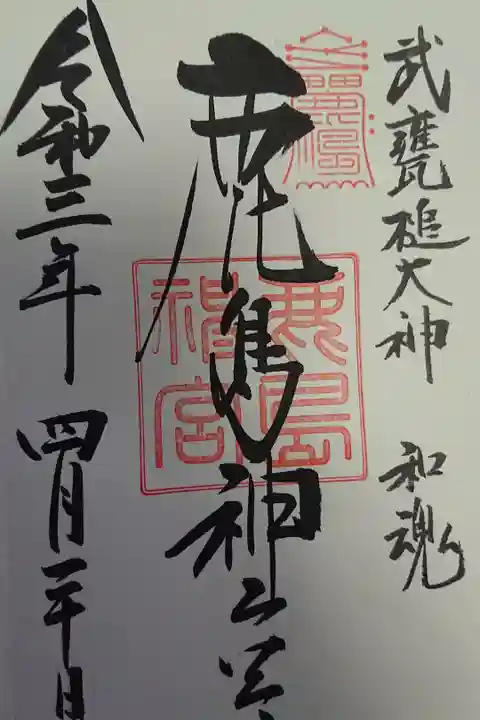 武甕槌大神 和魂
鹿島神宮
鹿島神宮
令和三年 四月二十日